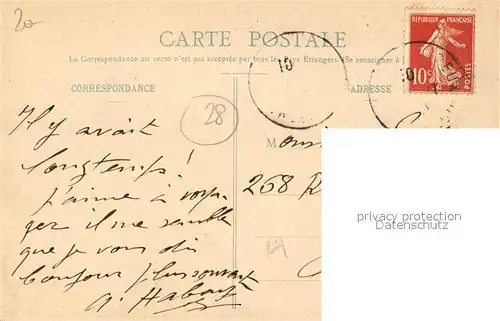 20
CARTE POSTALE
La Correspondance au recto n'est pas acceptée par tous les Pays Étrangers (Se renseigner à
REPUBLIQUE FRANÇAISE
10c
POSTES
CORRESPONDANCE
ADRESSE
28
Il y avait
longtemps !
J'aime à voya-
ger il me semble
que je vous dis
bonjour plus souvent
M
268 R
privacy protection
Datenschutz